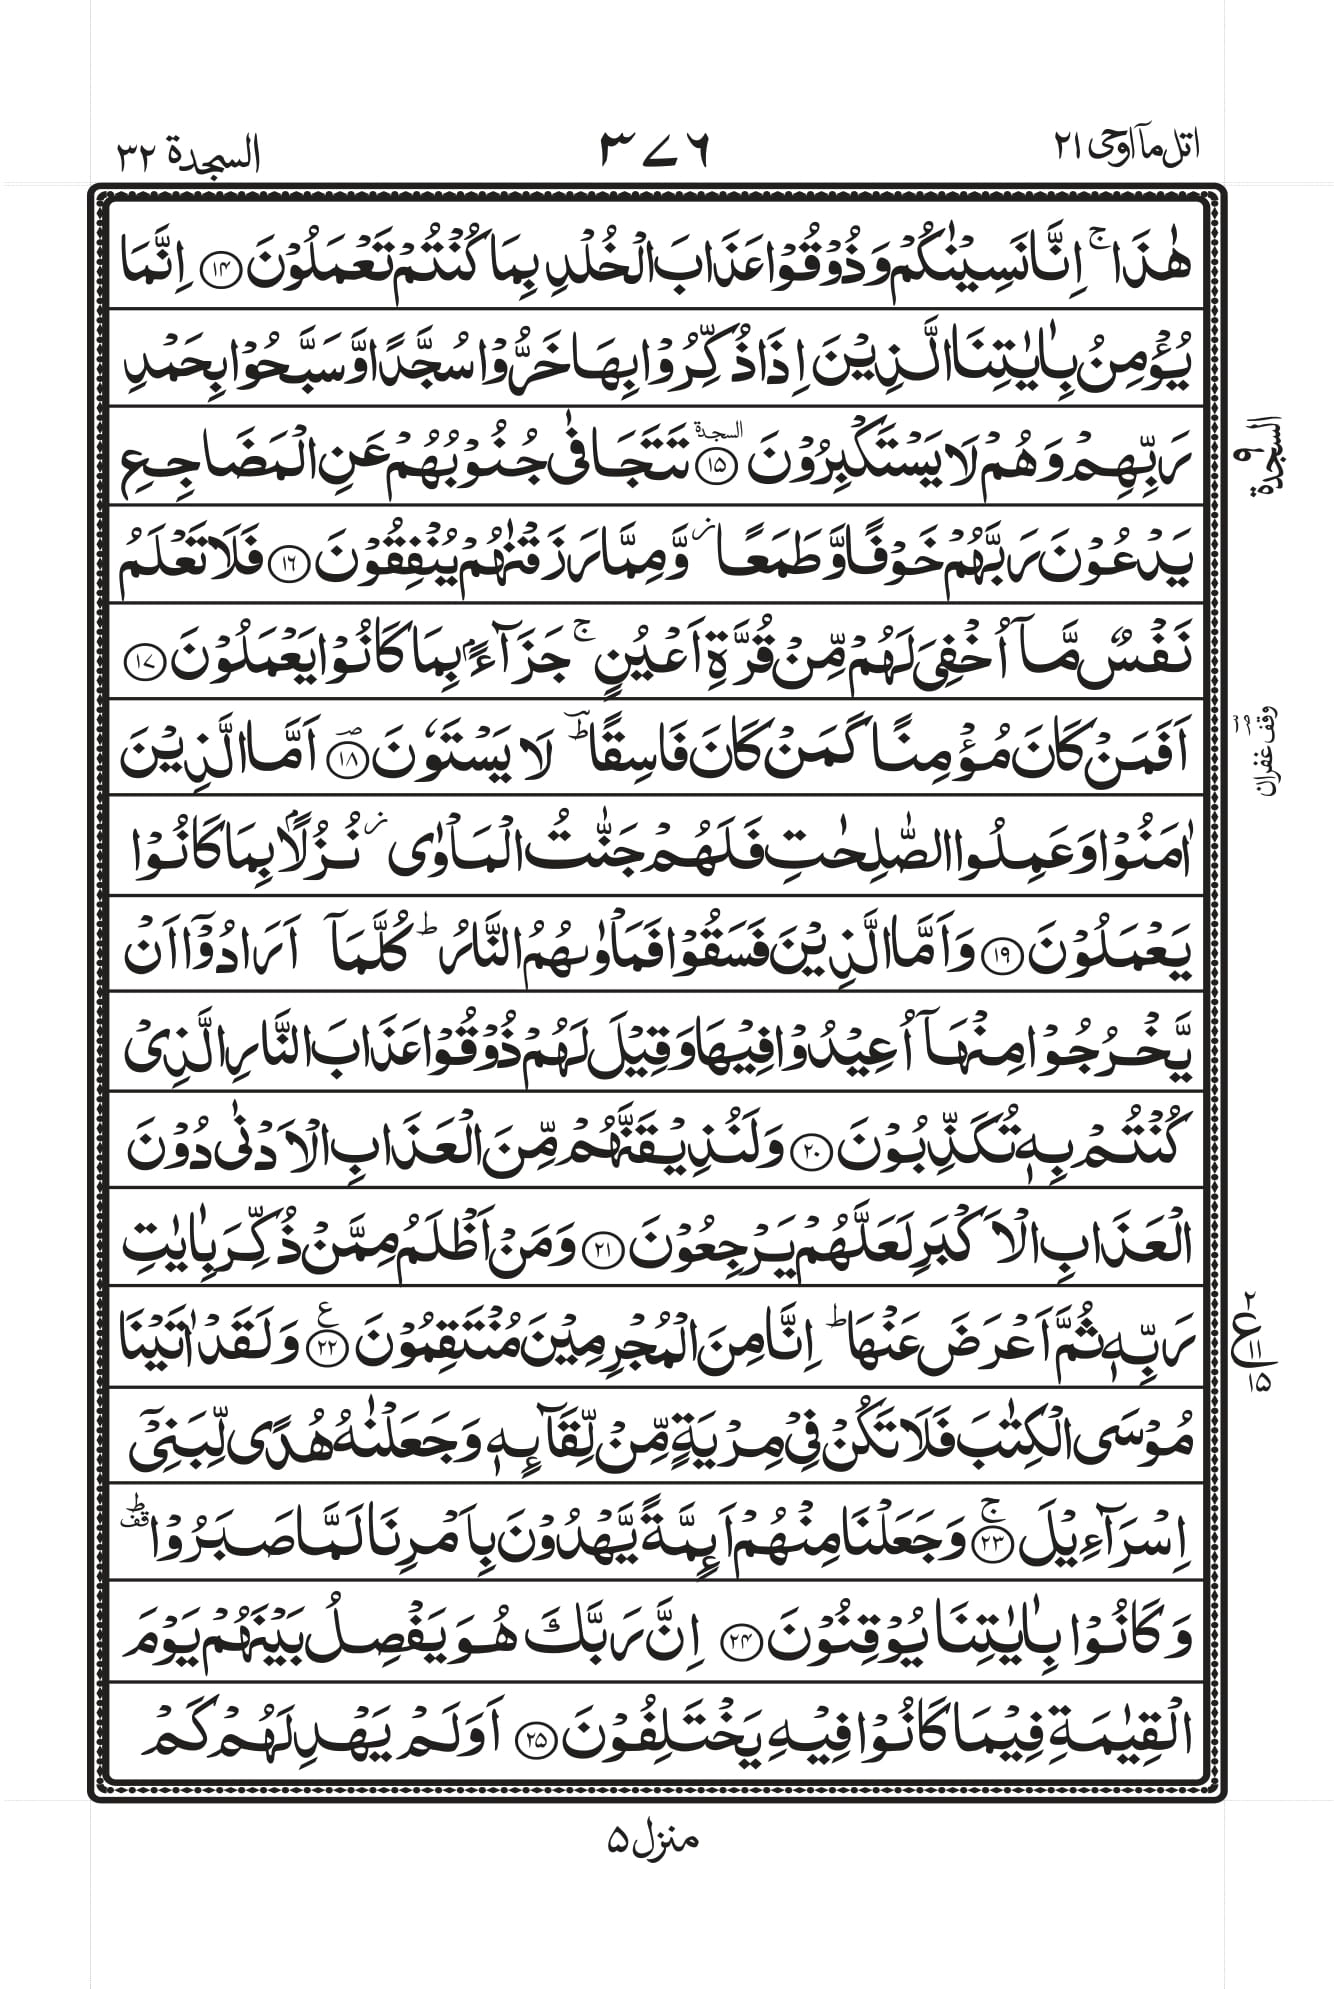 اتل مآ اوحی ۲۱
۳۷۶
السجدة ۳۲
هٰذَا ۚ اِنَّا نَسِيْنٰكُمْ وَذُوْقُوْا عَذَابَ الْخُلْدِ بِمَا كُنْتُمْ تَعْمَلُوْنَ ﴿۱۴﴾ اِنَّمَا
يُؤْمِنُ بِاٰيٰتِنَا الَّذِيْنَ اِذَا ذُكِّرُوْا بِهَا خَرُّوْا سُجَّدًا وَّسَبَّحُوْا بِحَمْدِ
رَبِّهِمْ وَهُمْ لَا يَسْتَكْبِرُوْنَ ﴿۱۵﴾ السجدة تَتَجَافٰى جُنُوْبُهُمْ عَنِ الْمَضَاجِعِ
السجدة ۹
يَدْعُوْنَ رَبَّهُمْ خَوْفًا وَّطَمَعًا ز وَّمِمَّا رَزَقْنٰهُمْ يُنْفِقُوْنَ ﴿۱۶﴾ فَلَا تَعْلَمُ
نَفْسٌ مَّآ اُخْفِيَ لَهُمْ مِّنْ قُرَّةِ اَعْيُنٍ ۚ جَزَآءًۢ بِمَا كَانُوْا يَعْمَلُوْنَ ﴿۱۷﴾
اَفَمَنْ كَانَ مُؤْمِنًا كَمَنْ كَانَ فَاسِقًا ؕ لَا يَسْتَوٗنَ ﴿۱۸﴾ ؔ اَمَّا الَّذِيْنَ
وقف غفران
اٰمَنُوْا وَعَمِلُوا الصّٰلِحٰتِ فَلَهُمْ جَنّٰتُ الْمَاْوٰى ز نُزُلًاۢ بِمَا كَانُوْا
يَعْمَلُوْنَ ﴿۱۹﴾ وَاَمَّا الَّذِيْنَ فَسَقُوْا فَمَاْوٰىهُمُ النَّارُ ؕ كُلَّمَآ اَرَادُوْٓا اَنْ
يَّخْرُجُوْا مِنْهَآ اُعِيْدُوْا فِيْهَا وَقِيْلَ لَهُمْ ذُوْقُوْا عَذَابَ النَّارِ الَّذِىْ
كُنْتُمْ بِهٖ تُكَذِّبُوْنَ ﴿۲۰﴾ وَلَنُذِيْقَنَّهُمْ مِّنَ الْعَذَابِ الْاَدْنٰى دُوْنَ
الْعَذَابِ الْاَكْبَرِ لَعَلَّهُمْ يَرْجِعُوْنَ ﴿۲۱﴾ وَمَنْ اَظْلَمُ مِمَّنْ ذُكِّرَ بِاٰيٰتِ
رَبِّهٖ ثُمَّ اَعْرَضَ عَنْهَا ؕ اِنَّا مِنَ الْمُجْرِمِيْنَ مُنْتَقِمُوْنَ ﴿۲۲﴾ ع وَلَقَدْ اٰتَيْنَا
۲ ع ۱۱ ۱۵
مُوْسَى الْكِتٰبَ فَلَا تَكُنْ فِيْ مِرْيَةٍ مِّنْ لِّقَآئِهٖ وَجَعَلْنٰهُ هُدًى لِّبَنِيْٓ
اِسْرَآءِيْلَ ﴿۲۳﴾ ۚ وَجَعَلْنَا مِنْهُمْ اَئِمَّةً يَّهْدُوْنَ بِاَمْرِنَا لَمَّا صَبَرُوْا ؕ قف
وَكَانُوْا بِاٰيٰتِنَا يُوْقِنُوْنَ ﴿۲۴﴾ اِنَّ رَبَّكَ هُوَ يَفْصِلُ بَيْنَهُمْ يَوْمَ
الْقِيٰمَةِ فِيْمَا كَانُوْا فِيْهِ يَخْتَلِفُوْنَ ﴿۲۵﴾ اَوَلَمْ يَهْدِ لَهُمْ كَمْ
منزل ۵